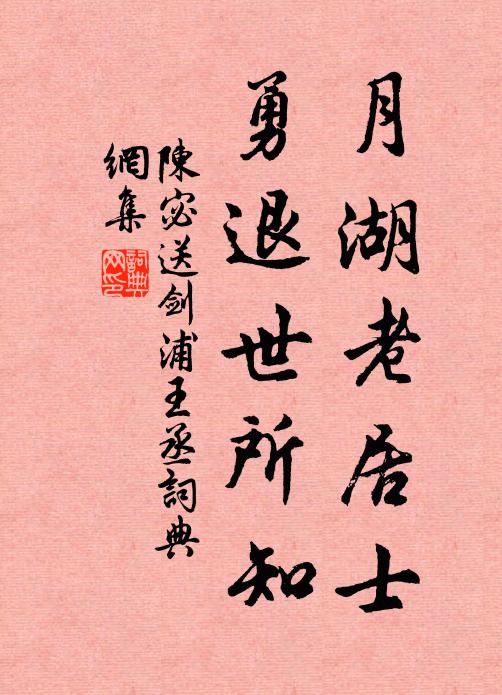 月湖老居士
勇退世所知
陳宓送劍浦王丞詞典
網集
詞典
网印